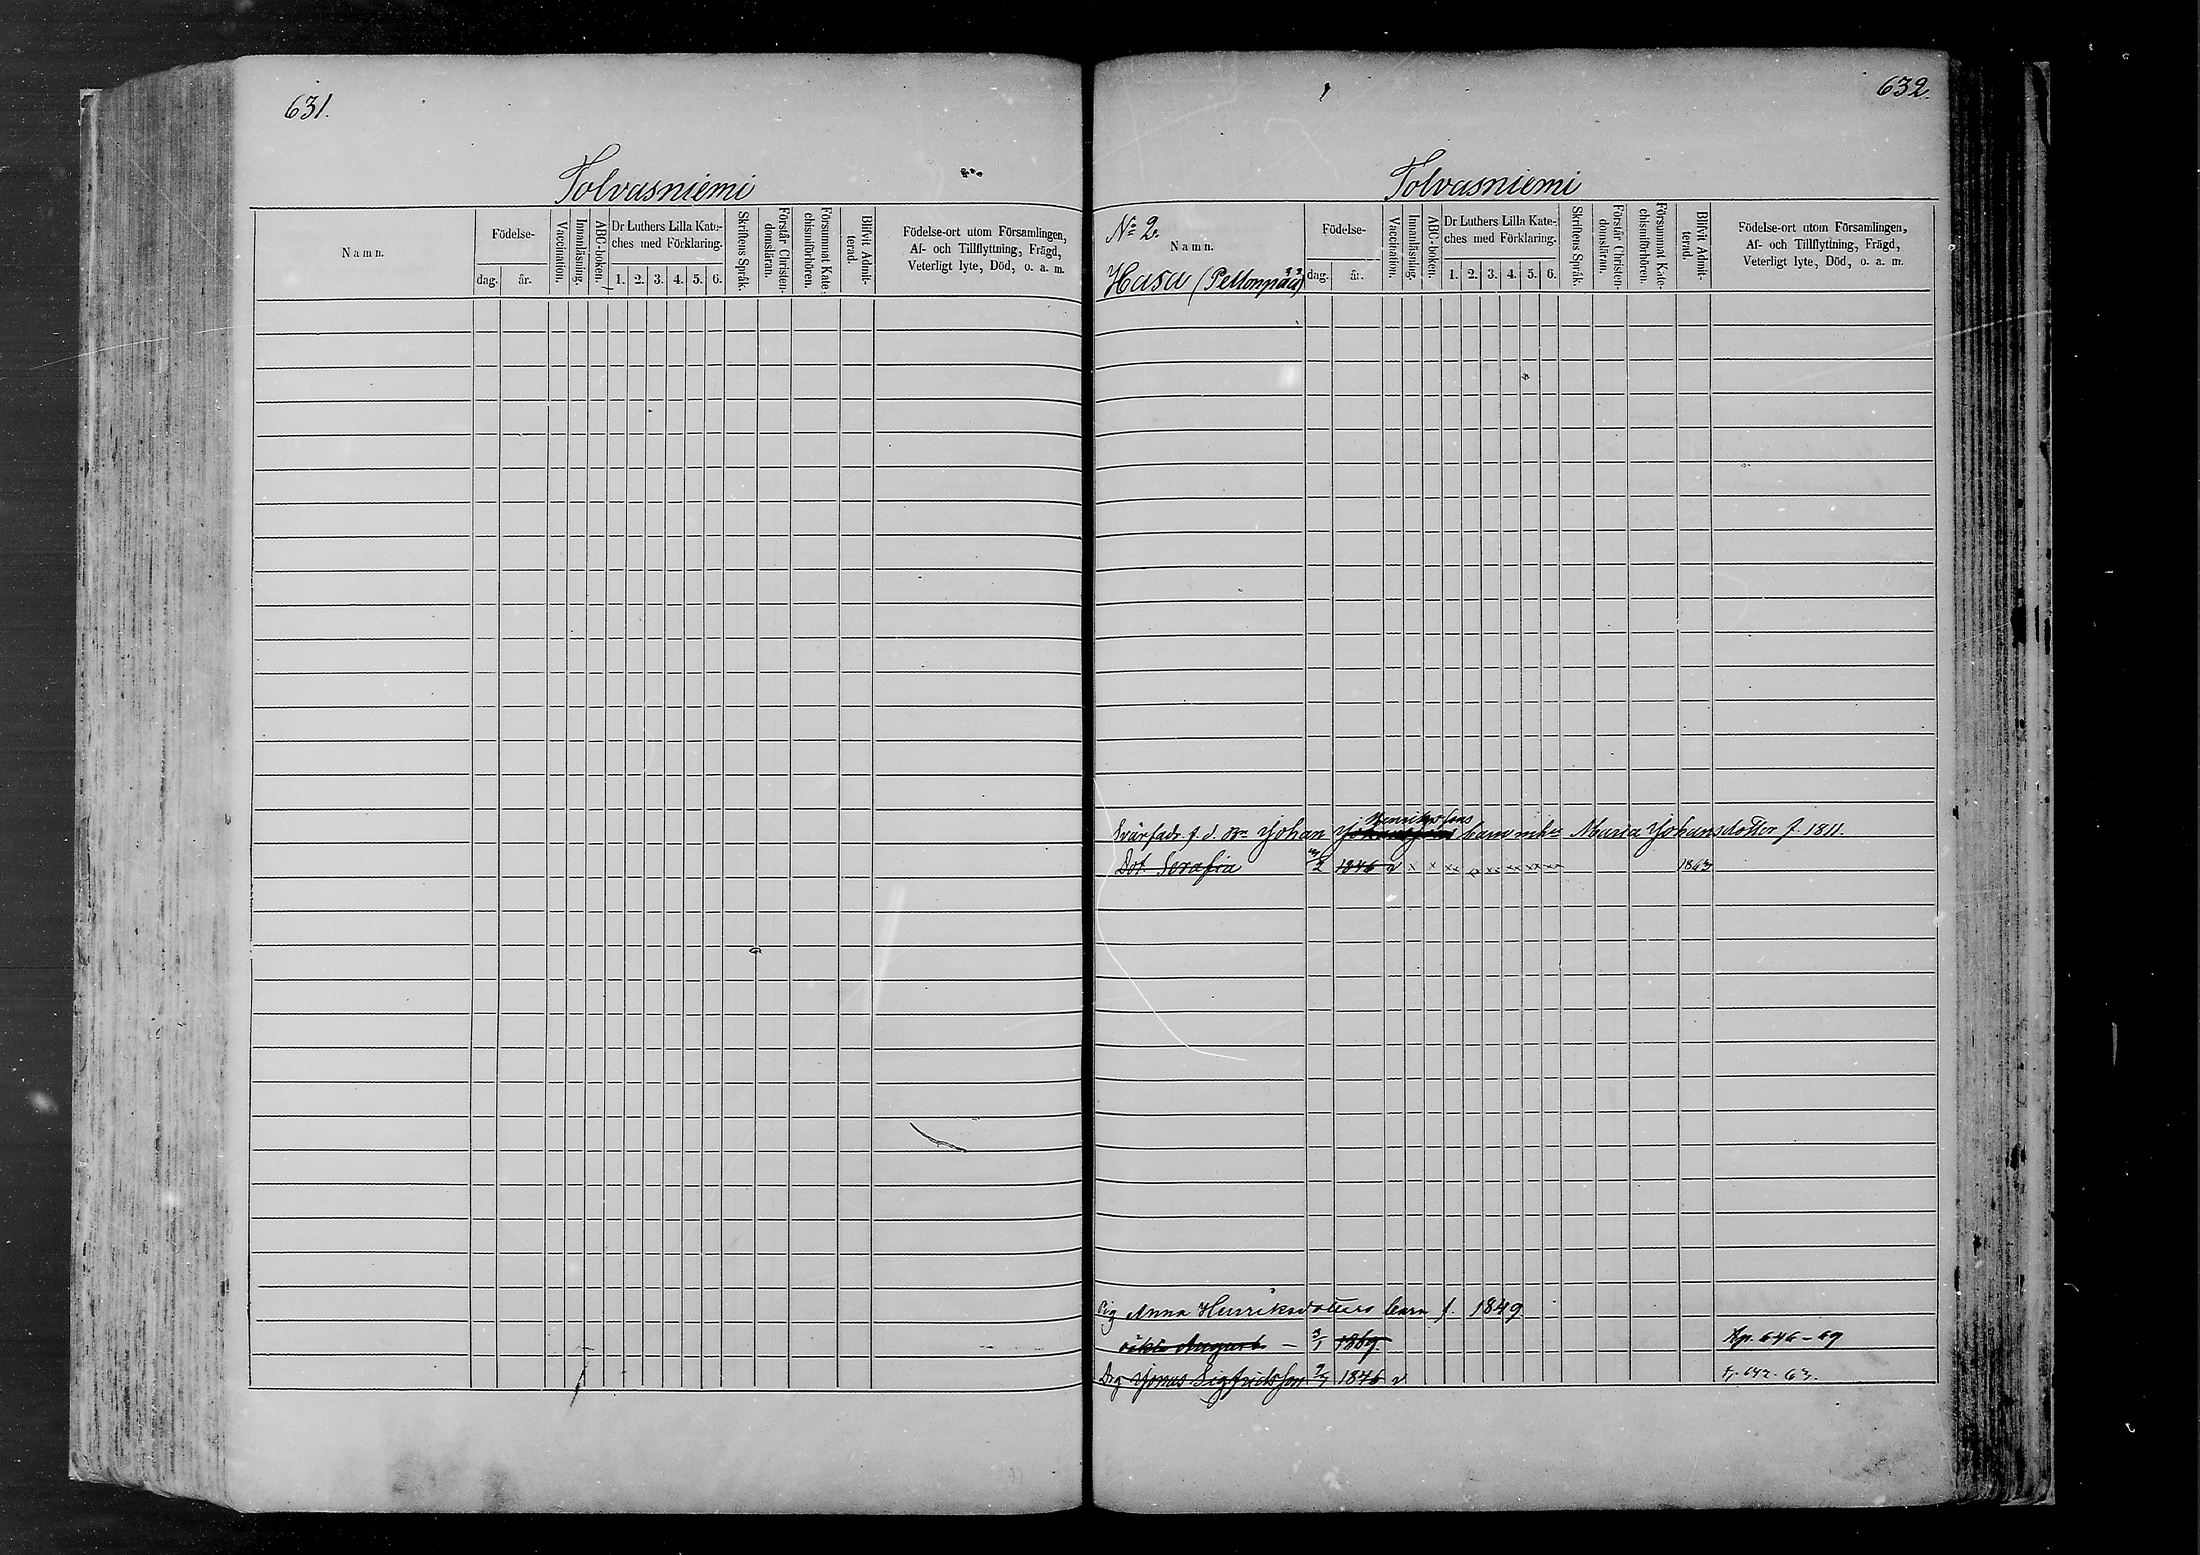 631.
Tolvasniemi
Namn.
Födelse-
dag.
år.
Vaccination.
Innanläsning.
ABC-boken.
Dr Luthers Lilla Kate-
ches med Förklaring.
1. 2. 3. 4. 5. 6.
Skriftens Språk.
Förstår Christen-
domsläran.
Försummat Kate-
chismiförhören.
Blifvit Admit-
terad.
Födelse-ort utom Församlingen,
Af- och Tillflyttning, Frägd,
Veterligt lyte, Död, o. a. m.
632.
Tolvasniemi
No 2.
Namn.
Hasa (Peltonpää)
Födelse-
dag.
år.
Vaccination.
Innanläsning.
ABC-boken.
Dr Luthers Lilla Kate-
ches med Förklaring.
1. 2. 3. 4. 5. 6.
Skriftens Språk.
Förstår Christen-
domsläran.
Försummat Kate-
chismiförhören.
Blifvit Admit-
terad.
Födelse-ort utom Församlingen,
Af- och Tillflyttning, Frägd,
Veterligt lyte, Död, o. a. m.
Henrikssons
Svärfadr. f. d. Johan barn Maria Johansdotter f. 1811.
Dot. Serafia 1846 v x x xx xx xx xx xx 1863
Pig Anna Henriksdotters barn f. 1849
oäkta August — 3/1 1869 646-69
Drg Jonas Sigfridsson 1846 v 642. 63.